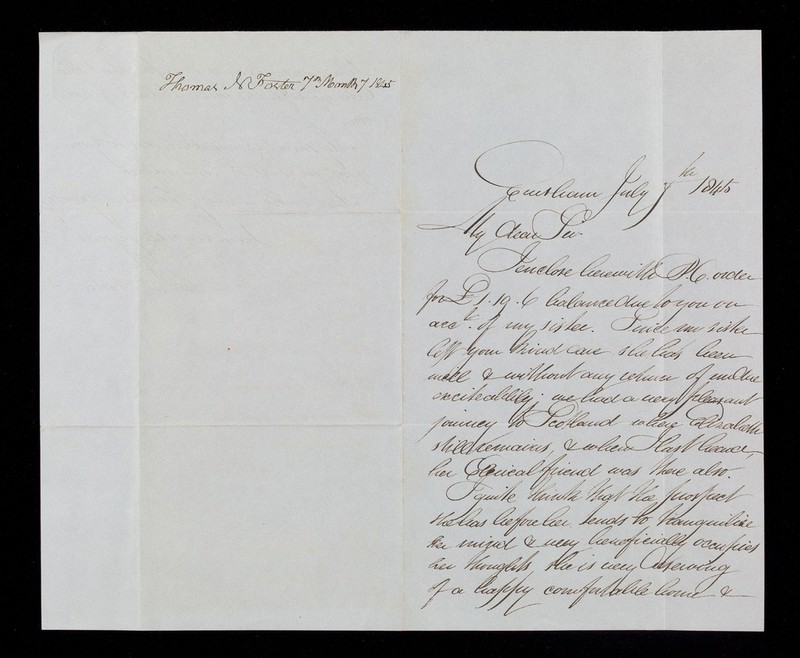 Thomas N Foster 7th Month 7 1845
July 7th 1845
My dear Sir
I enclose herewith P.O. order
for £1.19.6 balance due to you on
acct. of my sister. Since my sister
left your kind care she has been
well & without any return of undue
excitability; we had a very pleasant
journey to Scotland where Elizabeth
still remains, & when I last heard,
her Clerical friend was there also.
I quite think that the prospect
she has before her tends to tranquilize
her mind & very beneficially occupies
her thoughts, she is very deserving
of a happy comfortable home &